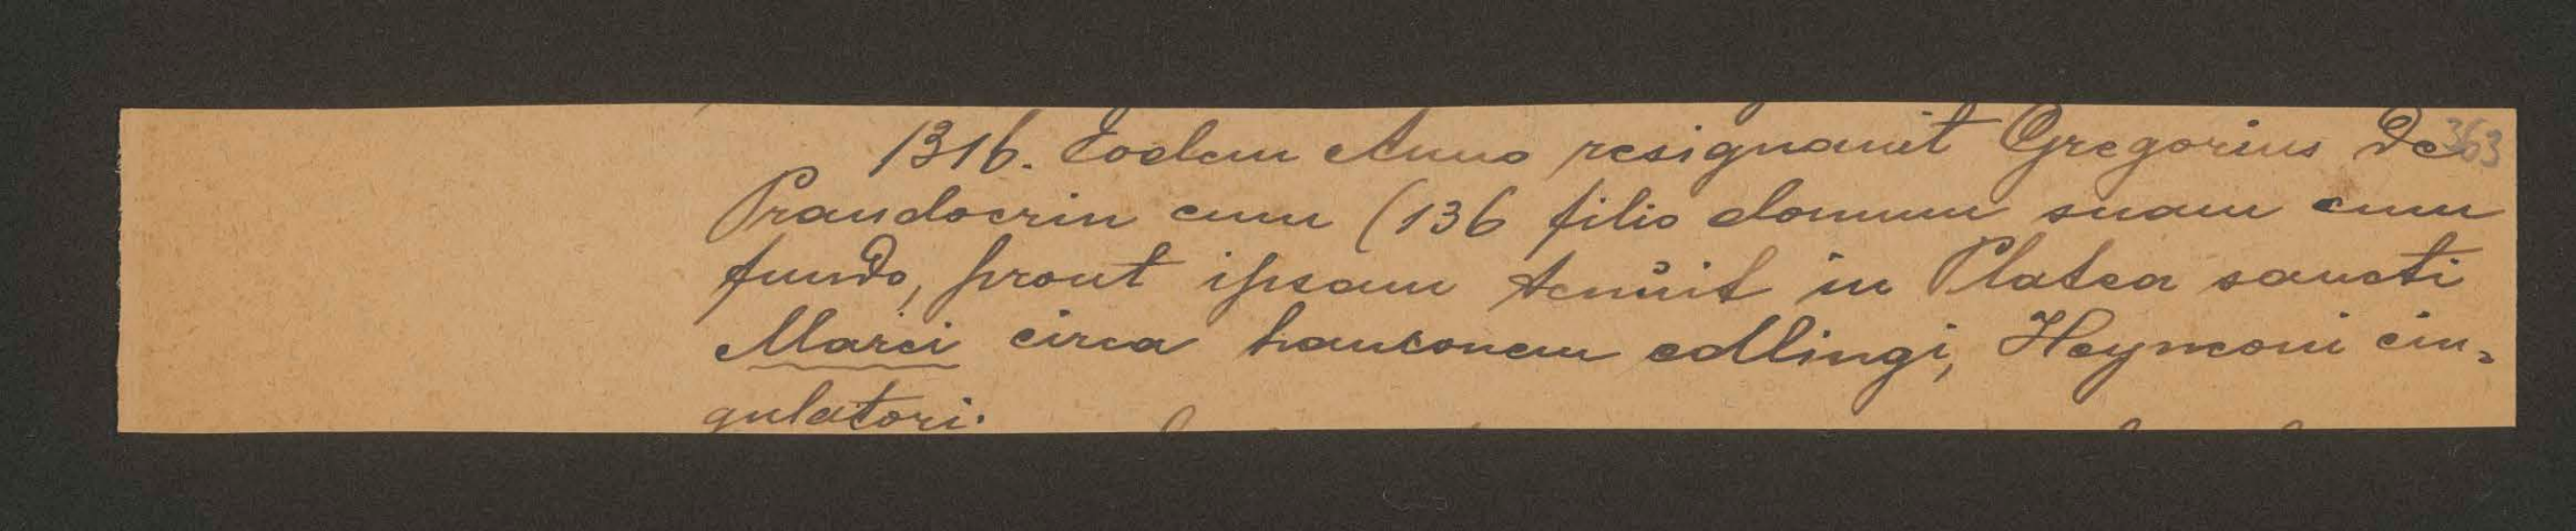 1316. Eodem Anno resignauit Gregorius de 363
Prandocrin cum (136 filio domum suam cum
fundo, prout ipsam tenuit in Platea sancti
Marci circa hanconem edlingi, Heymoni cin-
gulatori.